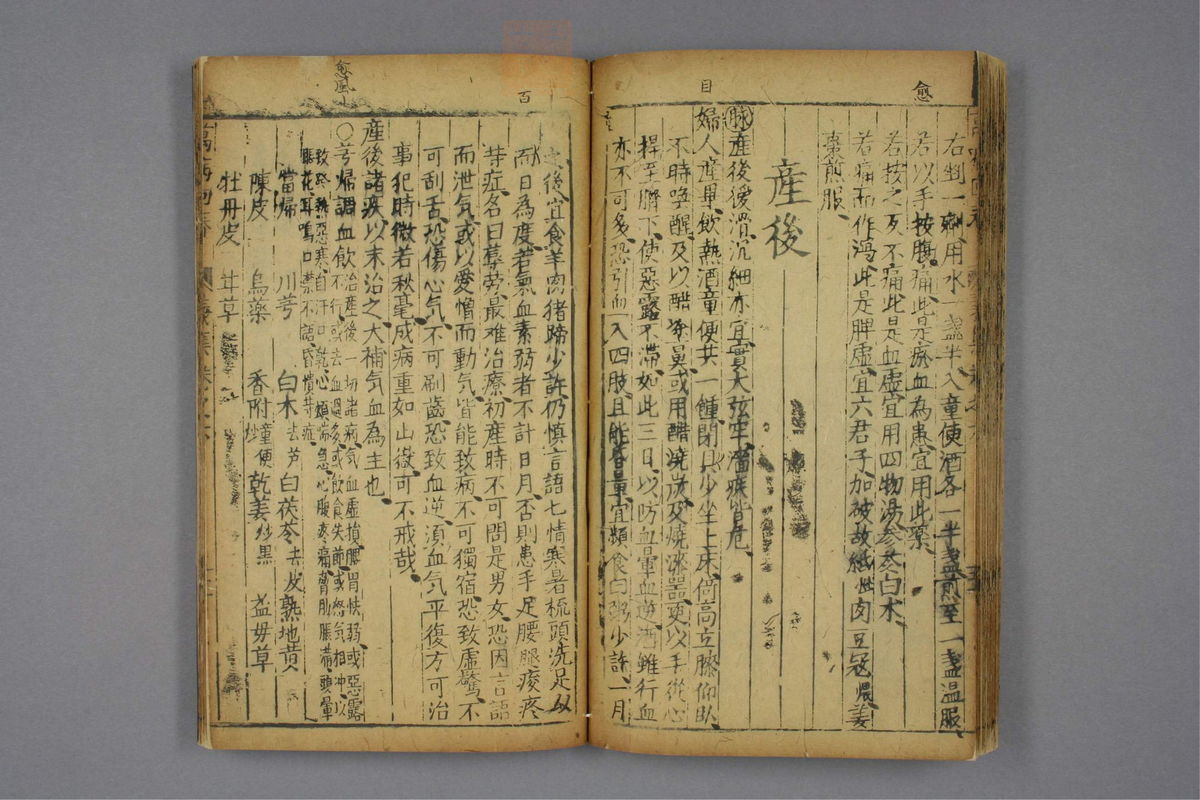 愈
目
右剉一劑用水一盞半入童便酒各一半盞煎至一盞溫服
若以手按腹痛此是瘀血為患宜用此藥
若按之又不痛此是血虛宜用四物湯參苓白朮
若痛而作瀉此是脾虛宜六君子加破故紙肉豆寇煨姜
棗煎服
產後
脉產後緩滑沉細亦宜實大弦牢濇疾皆危
婦人產畢飲熱酒童便共一鍾閉目少坐上床倚高立膝仰臥
不時喚醒及以醋塗鼻或用醋燒炭及燒漆器更以手從心
捍至臍下使惡露不滯如此三日以防血暈血逆酒雖行血
亦不可多恐引血入四肢且能昏暈宜頻食白粥少許一月
百
愈風
之後宜食羊肉猪蹄少許仍慎言語七情寒暑梳頭洗足以
百日為度若氣血素弱者不計日月否則患手足腰腿痠疼
等症名曰蓐勞最難治療初產時不可問是男女恐因言語
而泄气或以愛憎而動气皆能致病不可獨宿恐致虛驚不
可刮舌恐傷心气不可刷齒恐致血逆湏血气平復方可治
事犯時微若秋毫成病重如山嶽可不戒哉
產後諸疾以末治之大補气血為主也
○芎歸調血飲 治產後一切諸病气血虛損脾胃怯弱或惡露
不行或去血過多或飲食失節或怒气相冲以
致發熱惡寒自汗口乾心煩喘急心腹疼痛脅肋脹滿頭暈
眼花耳鳴口禁不語昏憒等症
當歸 川芎 白术去芦 白茯苓去皮 熟地黄
陳皮 烏藥 香附童便炒 乾姜炒黑 益母草
牡丹皮 甘草